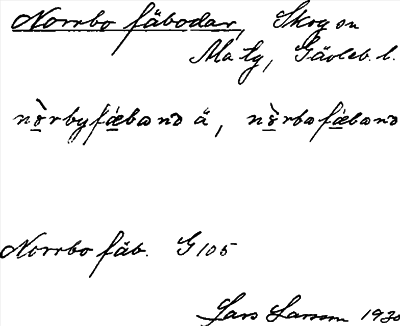 Norrbo fäbodar, Skog sn
Ma tg, Gävleb. l.
nòrbyfæband ä, nòrbofæband
Norrbo fäb. G 105
Lars Larsson 1930